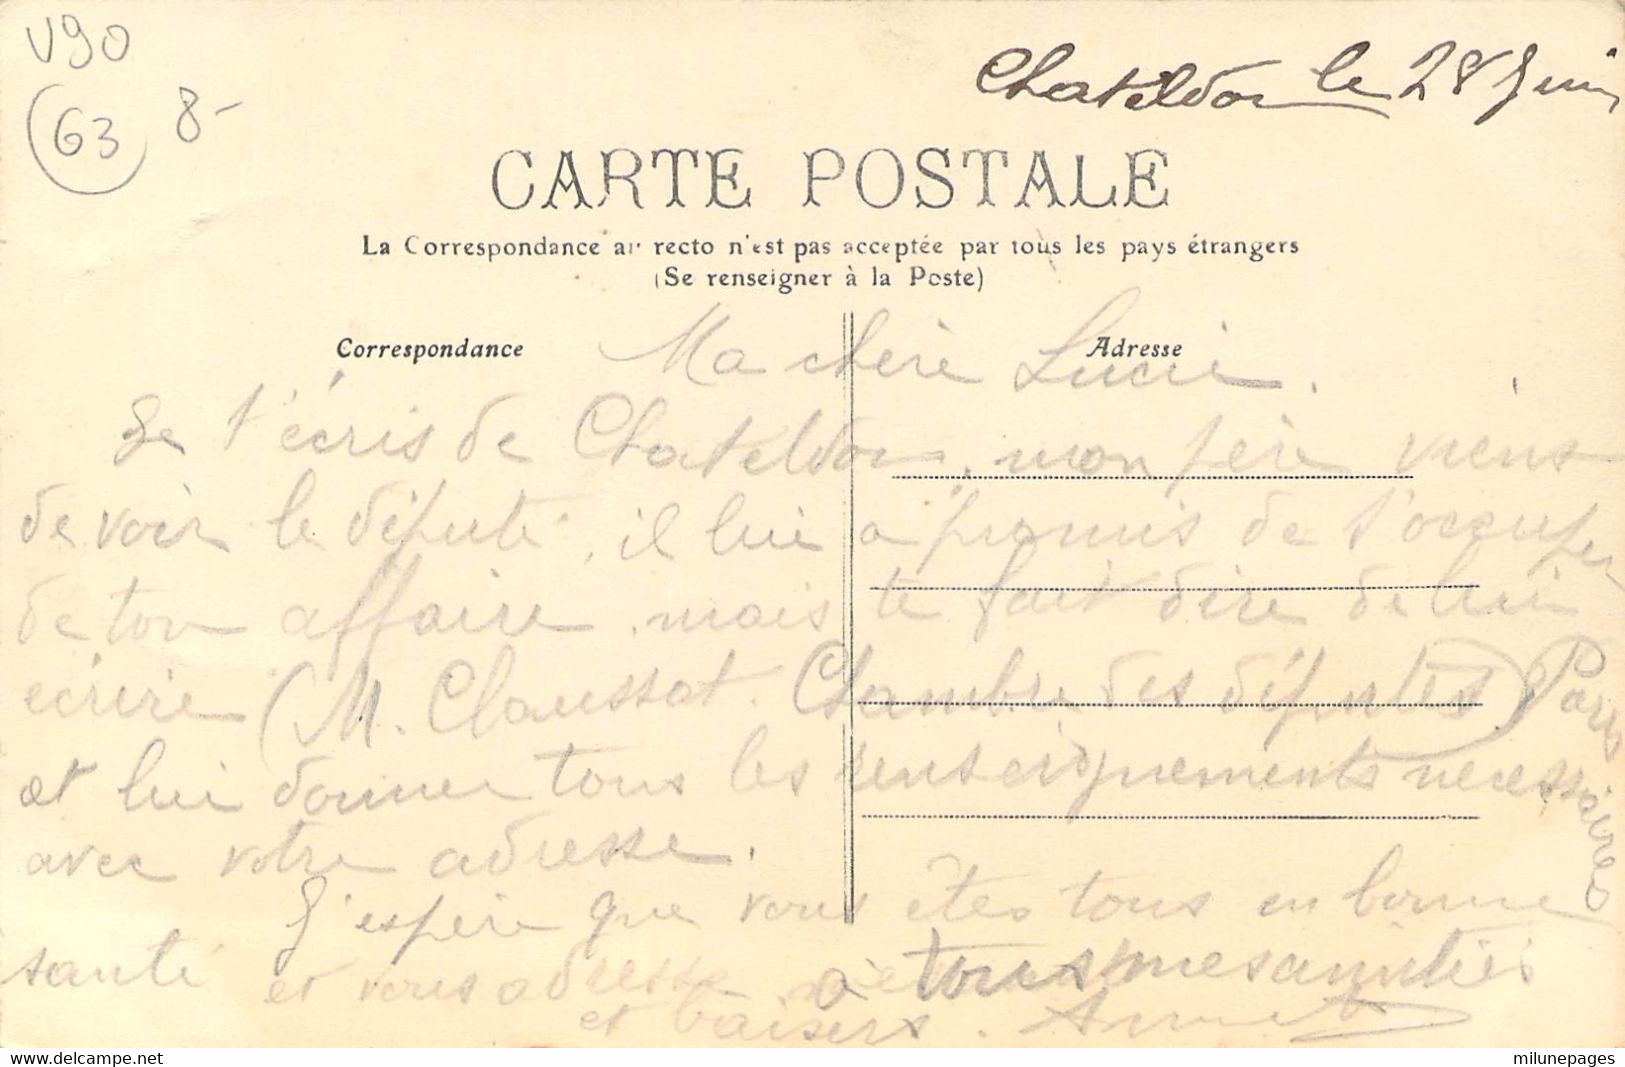 V90
63 8-
Chateldon le 28 Juin
CARTE POSTALE
La Correspondance au recto n'est pas acceptée par tous les pays étrangers
(Se renseigner à la Poste)
Correspondance
Adresse
Ma chère Lucie.
Je t'écris de Chateldon, mon père viens
de voir le député, il lui a promis de t'occuper
de ton affaire, mais te fait dire de lui
écrire (M. Claussat. Chambre des députés) Paris
et lui donner tous les renseignements necessaires
avec votre adresse.
J'espère que vous êtes tous en bonne
santé et vous adresse à tous mes amitiés
et baisers.
delcampe.net
milunepages